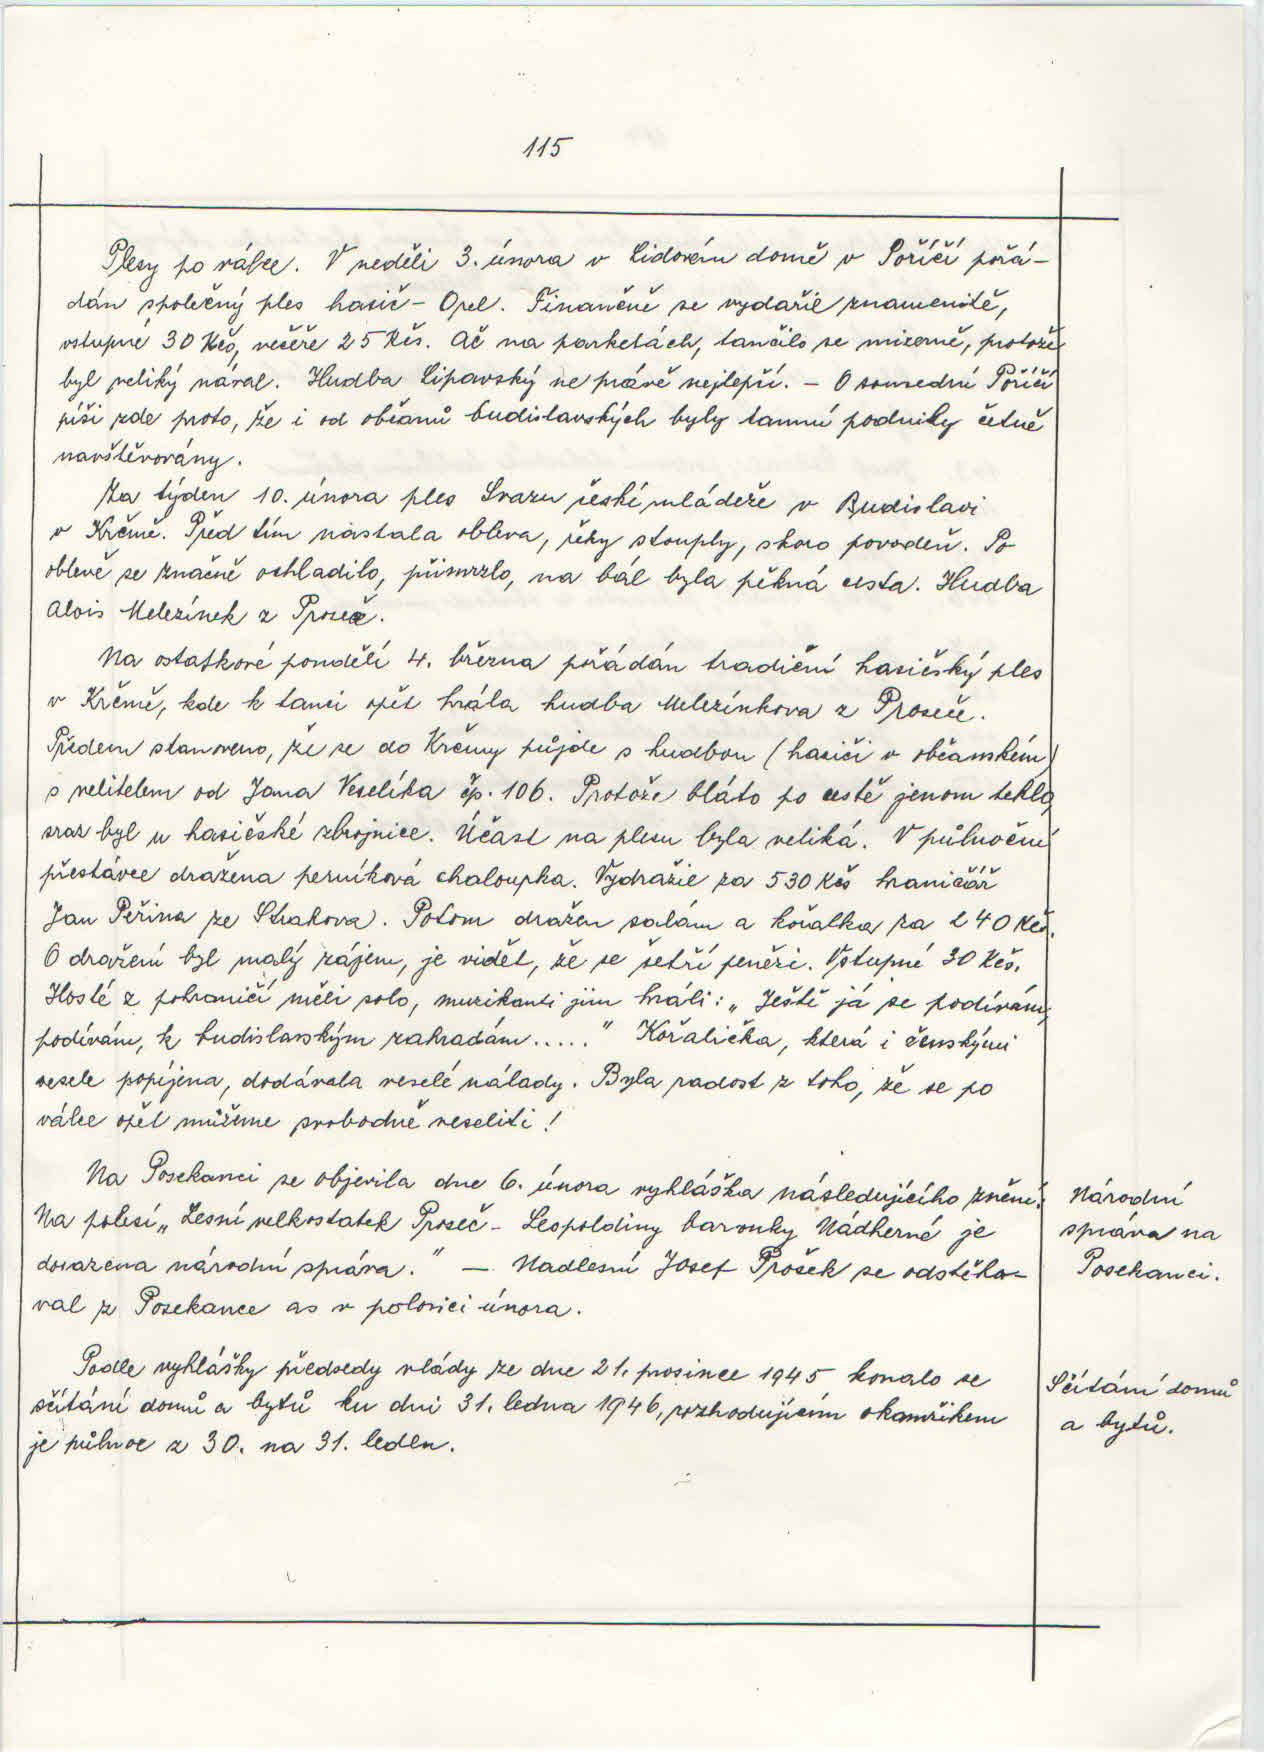 115
Plesy po válce. V neděli 3. února v Lidovém domě v Poříčí pořá-
dán společný ples hasič - Opel. Finančně se vydařil znamenitě,
vstupné 30 Kčs, večeře 25 Kčs. Ač na parketách, tančilo se mizerně, protože
byl veliký nával. Hudba Lipavský ne právě nejlepší. - O sousední Poříčí
píši zde proto, že i od občanů budislavských byly tamní podniky četně
navštěvovány.
Za týden 10. února ples Svazu české mládeže v Budislavi
v Krčmě. Před tím nastala obleva, řeky stouply, skoro povodeň. Po
oblevě se značně ochladilo, přimrzlo, na bál byla pěkná cesta. Hudba
Alois Melezínek z Proseče.
Na ostatkové pondělí 4. března pořádán tradiční hasičský ples
v Krčmě, kde k tanci opět hrála hudba Melezínkova z Proseče.
Předem stanoveno, že se do Krčmy půjde s hudbou (hasiči v občanském)
s velitelem od Jana Veselíka čp. 106. Protože bláto po cestě jenom teklo,
sraz byl u hasičské zbrojnice. Účast na plesu byla veliká. V půlnoční
přestávce dražena perníková chaloupka. Vydražil za 530 Kčs hraničář
Jan Peřina ze Strakova. Potom dražen salám a kořalka za 240 Kčs.
O dražení byl malý zájem, je vidět, že se šetří penězi. Vstupné 30 Kčs.
Hosté z pohraničí měli solo, muzikanti jim hráli: „Ještě já se podívám,
podívám, k budislavským zahradám....." Kořalička, která i ženskými
vesele popíjena, dodávala veselé nálady. Byla radost z toho, že se po
válce opět můžeme svobodně veseliti!
Na Posekanci se objevila dne 6. února vyhláška následujícího znění:
Na polesí „Lesní velkostatek Proseč - Leopoldiny baronky Nádherné je
dosazena národní správa." - Nadlesní Josef Prošek se odstěho-
val z Posekance as v polovici února.
Národní
správa na
Posekanci.
Podle vyhlášky předsedy vlády ze dne 21. prosince 1945 konalo se
sčítání domů a bytů ku dni 31. ledna 1946, rozhodujícím okamžikem
je půlnoc z 30. na 31. leden.
Sčítání domů
a bytů.